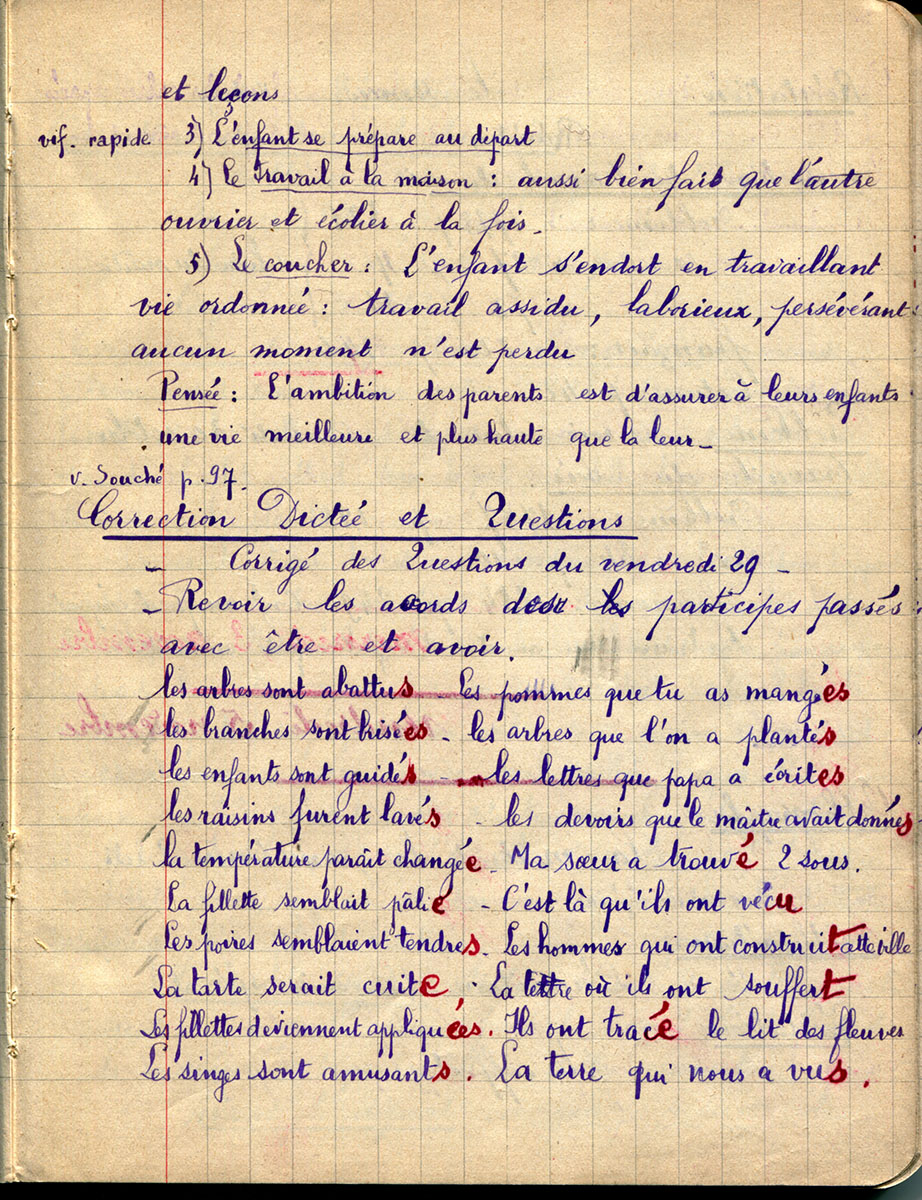 et leçons
vif. rapide 3) L'enfant se prépare au départ
4) Le travail à la maison : aussi bien fait que l'autre
ouvrier et écolier à la fois.
5) Le coucher : L'enfant s'endort en travaillant
vie ordonnée : travail assidu, laborieux, persévérant :
aucun moment n'est perdu
Pensée : L'ambition des parents est d'assurer à leurs enfants
une vie meilleure et plus haute que la leur_
v. Souché p. 97.
Correction Dictée et Questions
_ Corrigé des Questions du vendredi 29 _
_ Revoir les acords des participes passés :
avec être et avoir.
les arbres sont abattus _ Les pommes que tu as mangées
les branches sont brisées _ les arbres que l'on a plantés
les enfants sont guidés _ les lettres que papa a écrites
les raisins furent lavés _ les devoirs que le maître avait donnés
la température paraît changée _ Ma sœur a trouvé 2 sous.
La fillette semblait pâlie _ C'est là qu'ils ont vécu
Les poires semblaient tendres. Les hommes qui ont construit cette ville
La tarte serait cuite . La terre où ils ont souffert
Les fillettes deviennent appliquées. Ils ont tracé le lit des fleuves
Les singes sont amusants . La terre qui nous a vus .